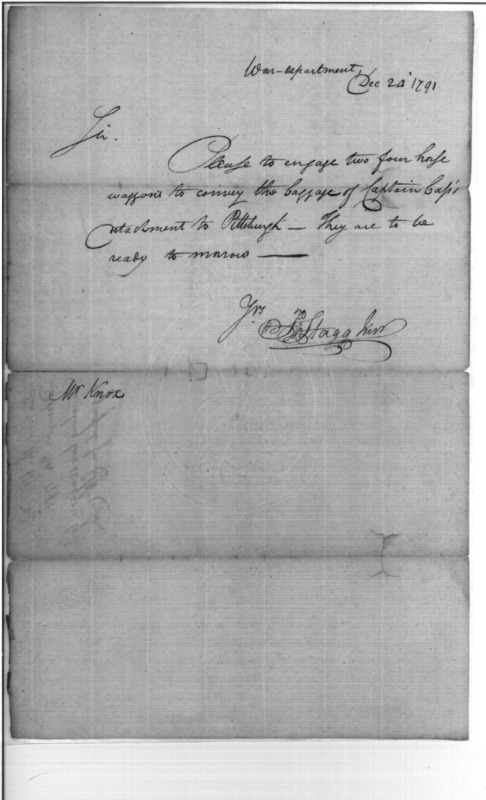 War-department,
Dec 24 1791
Sir.
Please to engage two four horse
waggons to convey the baggage of Captain Cass's
detachment to Pittsburgh — They are to be
ready to morrow —
Yrs
Stagg Junr
Mr Knox